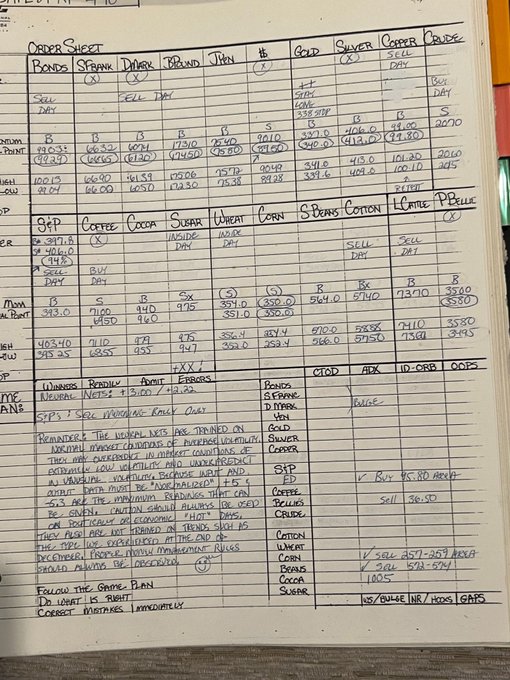 ORDER SHEET
BONDS SFRANK DMARK BPOUND JPEN $ GOLD SILVER COPPER CRUDE
(X) (X) (X) (X) SELL
DAY
SELL SELL DAY ++ BUY
DAY STAY DAY
LONG
338 STOP
B B B B B S B B B S
9903 6632 6074 17310 7540 9010 337.0 406.0 99.00 2070
(9929) (6665) (6120) (17450) (7580) (8950) (340.0) (412.0) (99.80)
10013 6690 6139 17506 7572 9049 341.0 413.0 101.20 2060
9904 6600 6050 17230 7538 8928 339.6 409.0 100.10
S&P COFFEE COCOA SUGAR WHEAT CORN S BEANS COTTON L CATTLE P BELLIE
B@ 397.8 (X) INSIDE INSIDE (X)
S@ 406.0 DAY DAY SELL SELL
(94%) DAY DAY
SELL BUY
DAY DAY
B S B Sx (S) (S) B Bx B B
393.0 7100 940 975 354.0 (350.0) 564.0 5740 7370 3500
6950 960 351.0 (350.0) (3580)
40340 7110 979 975 356.4 254.4 570.0 5838 7410 3580
39525 6855 955 947 352.0 252.4 566.0 5750 7360 3495
+XX:
WINNERS READILY ADMIT ERRORS
NEURAL NETS: +3.00 / +2.22
S&P'S: SELL MORNING RALLY ONLY
REMINDER: THE NEURAL NETS ARE TRAINED ON
NORMAL MARKET CONDITIONS OF AVERAGE VOLATILITY.
THEY MAY OVERPREDICT IN MARKET CONDITIONS OF
EXTREMELY LOW VOLATILITY AND UNDERPREDICT
IN UNUSUAL VOLATILITY, BECAUSE INPUT AND
OUTPUT DATA MUST BE "NORMALIZED" +5 &
-5.3 ARE THE MAXIMUM READINGS THAT CAN
BE GIVEN. CAUTION SHOULD ALWAYS BE USED
ON POLITICALLY OR ECONOMIC "HOT" DAYS,
THEY ALSO ARE NOT TRAINED ON TRENDS SUCH AS
THE TYPE WE EXPERIENCED AT THE END OF
DECEMBER. PROPER MONEY MANAGEMENT RULES
SHOULD ALWAYS BE OBSERVED.
FOLLOW THE GAME PLAN
DO WHAT IS RIGHT
CORRECT MISTAKES IMMEDIATELY
CTOD ADX ID-ORB OOPS
BONDS
S FRANC
D MARK BULGE
YEN
GOLD
SILVER
COPPER
S&P
ED ✓ BUY 95.80 AREA
COFFEE
BELLIES SELL 36.50
CRUDE
COTTON
WHEAT
CORN ✓ SELL 257-259 AREA
BEANS ✓ SELL 572-574
COCOA 1005
SUGAR
WS/BULGE NR/HOOKS GAPS